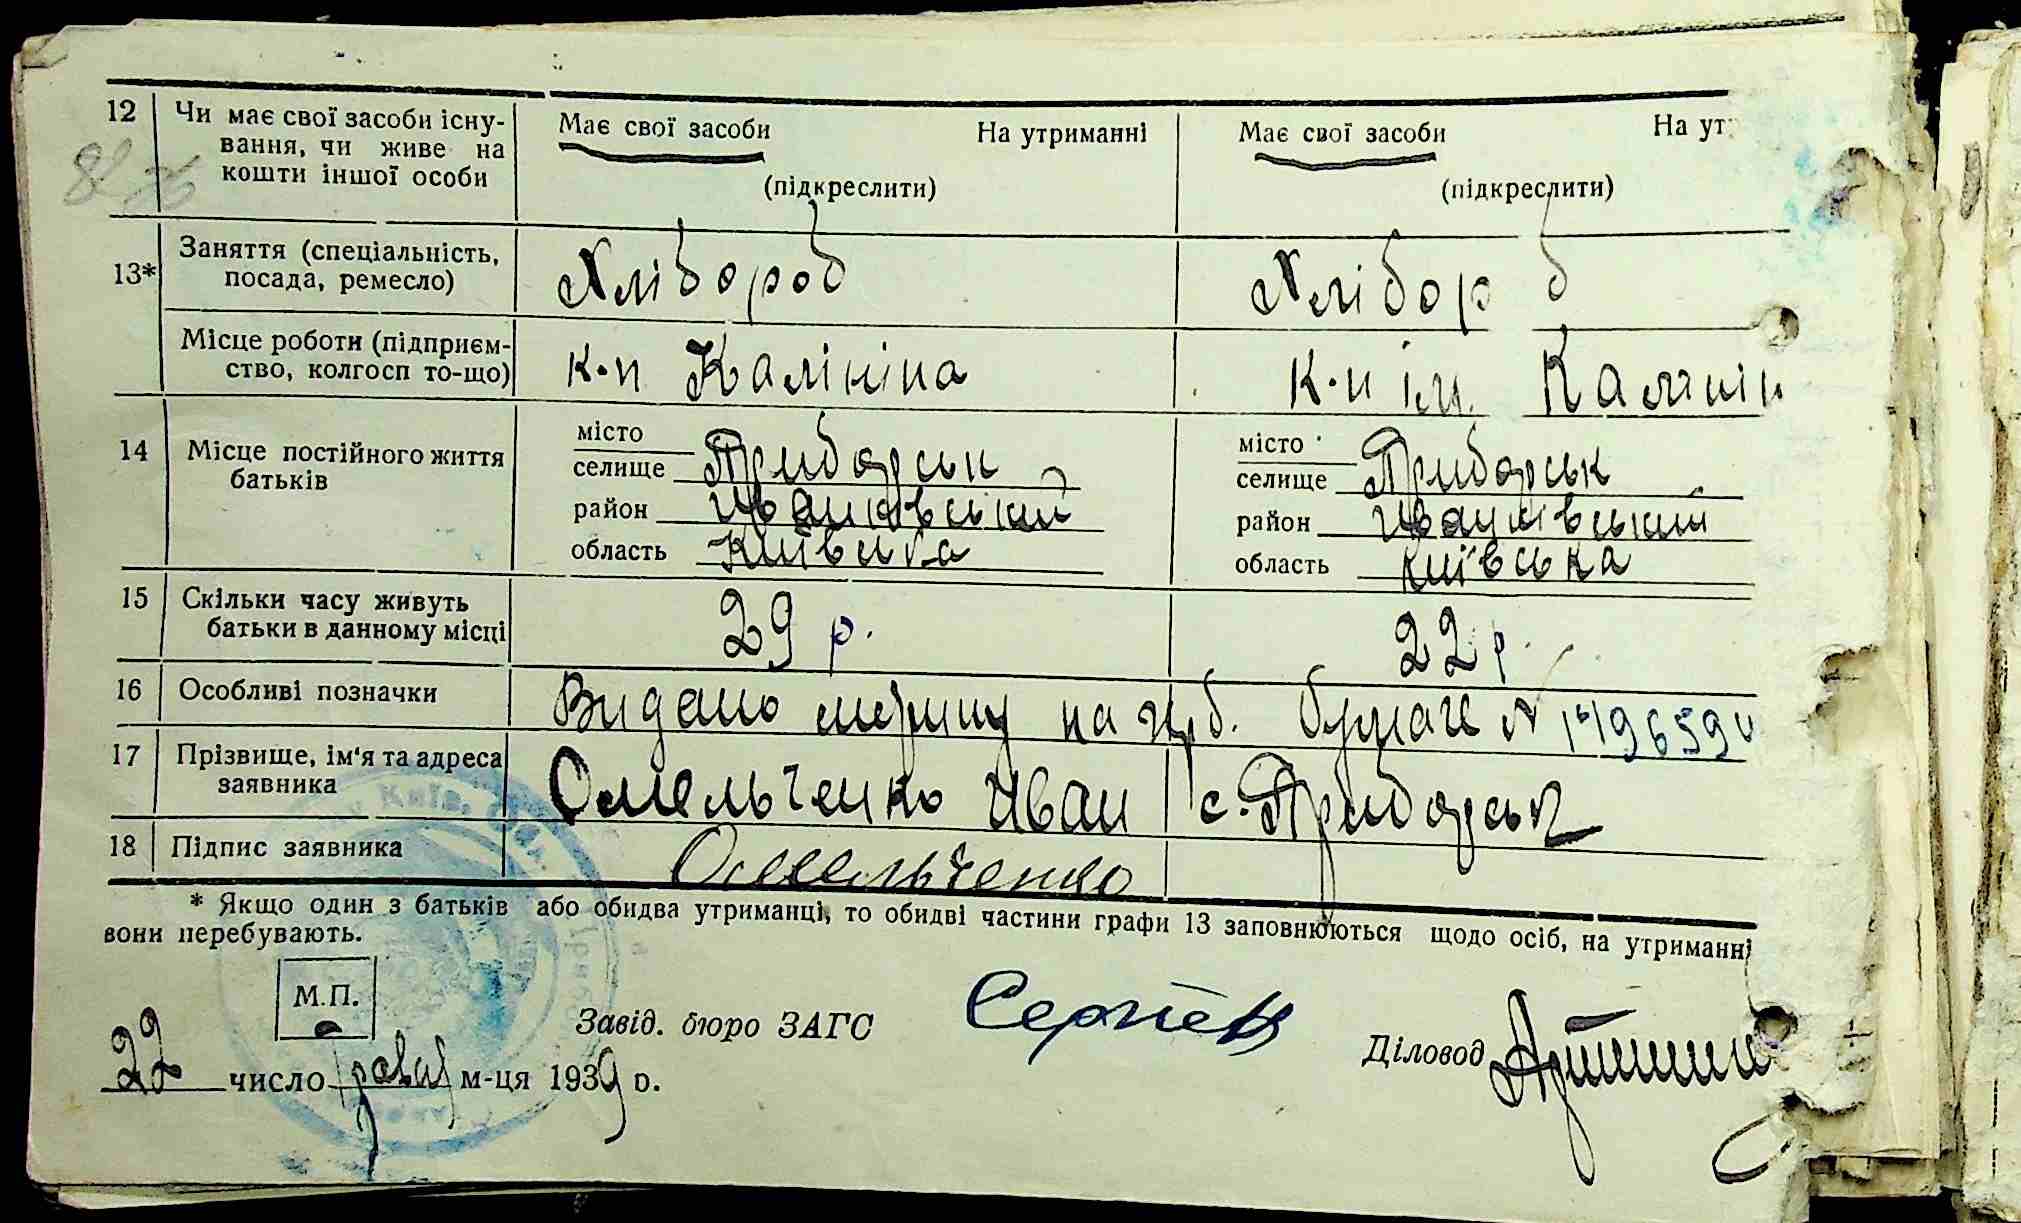 12 Чи має свої засоби існу-
вання, чи живе на
кошти іншої особи
Має свої засоби На утриманні
(підкреслити)
Має свої засоби На ут
(підкреслити)
13* Заняття (спеціальність,
посада, ремесло)
Хлібороб
Хлібор б
Місце роботи (підприєм-
ство, колгосп то-що)
к-п Калініна
к-п ім. Калінін
14 Місце постійного життя
батьків
місто
селище Приборськ
район Иванківський
область Київська
місто
селище Приборськ
район Иванківський
область Київська
15 Скільки часу живуть
батьки в данному місці
29 р.
22 р.
16 Особливі позначки
Видано на бумаге №
17 Прізвище, ім'я та адреса
заявника
Омельченко Иван с. Приборськ
18 Підпис заявника
Омельченко
* Якщо один з батьків або обидва утриманці, то обидві частини графи 13 заповнюються щодо осіб, на утриманні
вони перебувають.
М.П.
Завід. бюро ЗАГС
Діловод
22 число травня м-ця 1939 р.